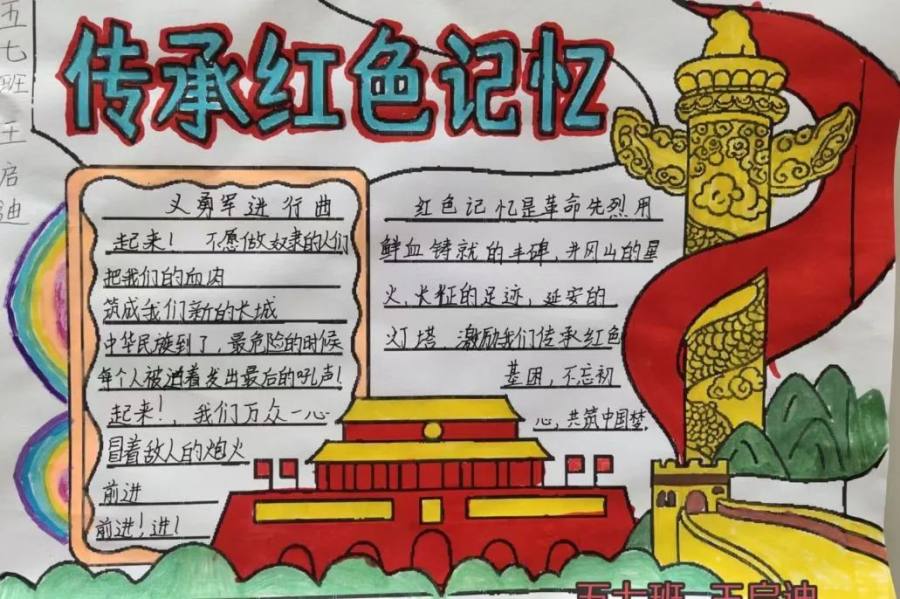 五七班 王启迪
传承红色记忆
义勇军进行曲
起来！不愿做奴隶的人们
把我们的血肉
筑成我们新的长城
中华民族到了，最危险的时候
每个人被迫着发出最后的吼声！
起来！，我们万众一心
冒着敌人的炮火
前进
前进！进！
红色记忆是革命先烈用
鲜血铸就的丰碑，井冈山的星
火，长征的足迹，延安的
灯塔，激励我们传承红色
基因，不忘初
心，共筑中国梦，
五七班 王启迪